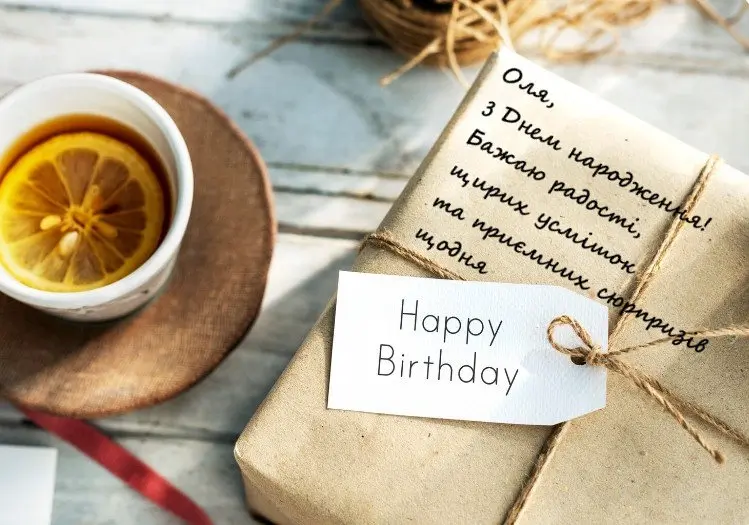 Оля,
з Днем народження!
Бажаю радості,
щирих усмішок
та приємних сюрпризів
щодня
Happy
Birthday